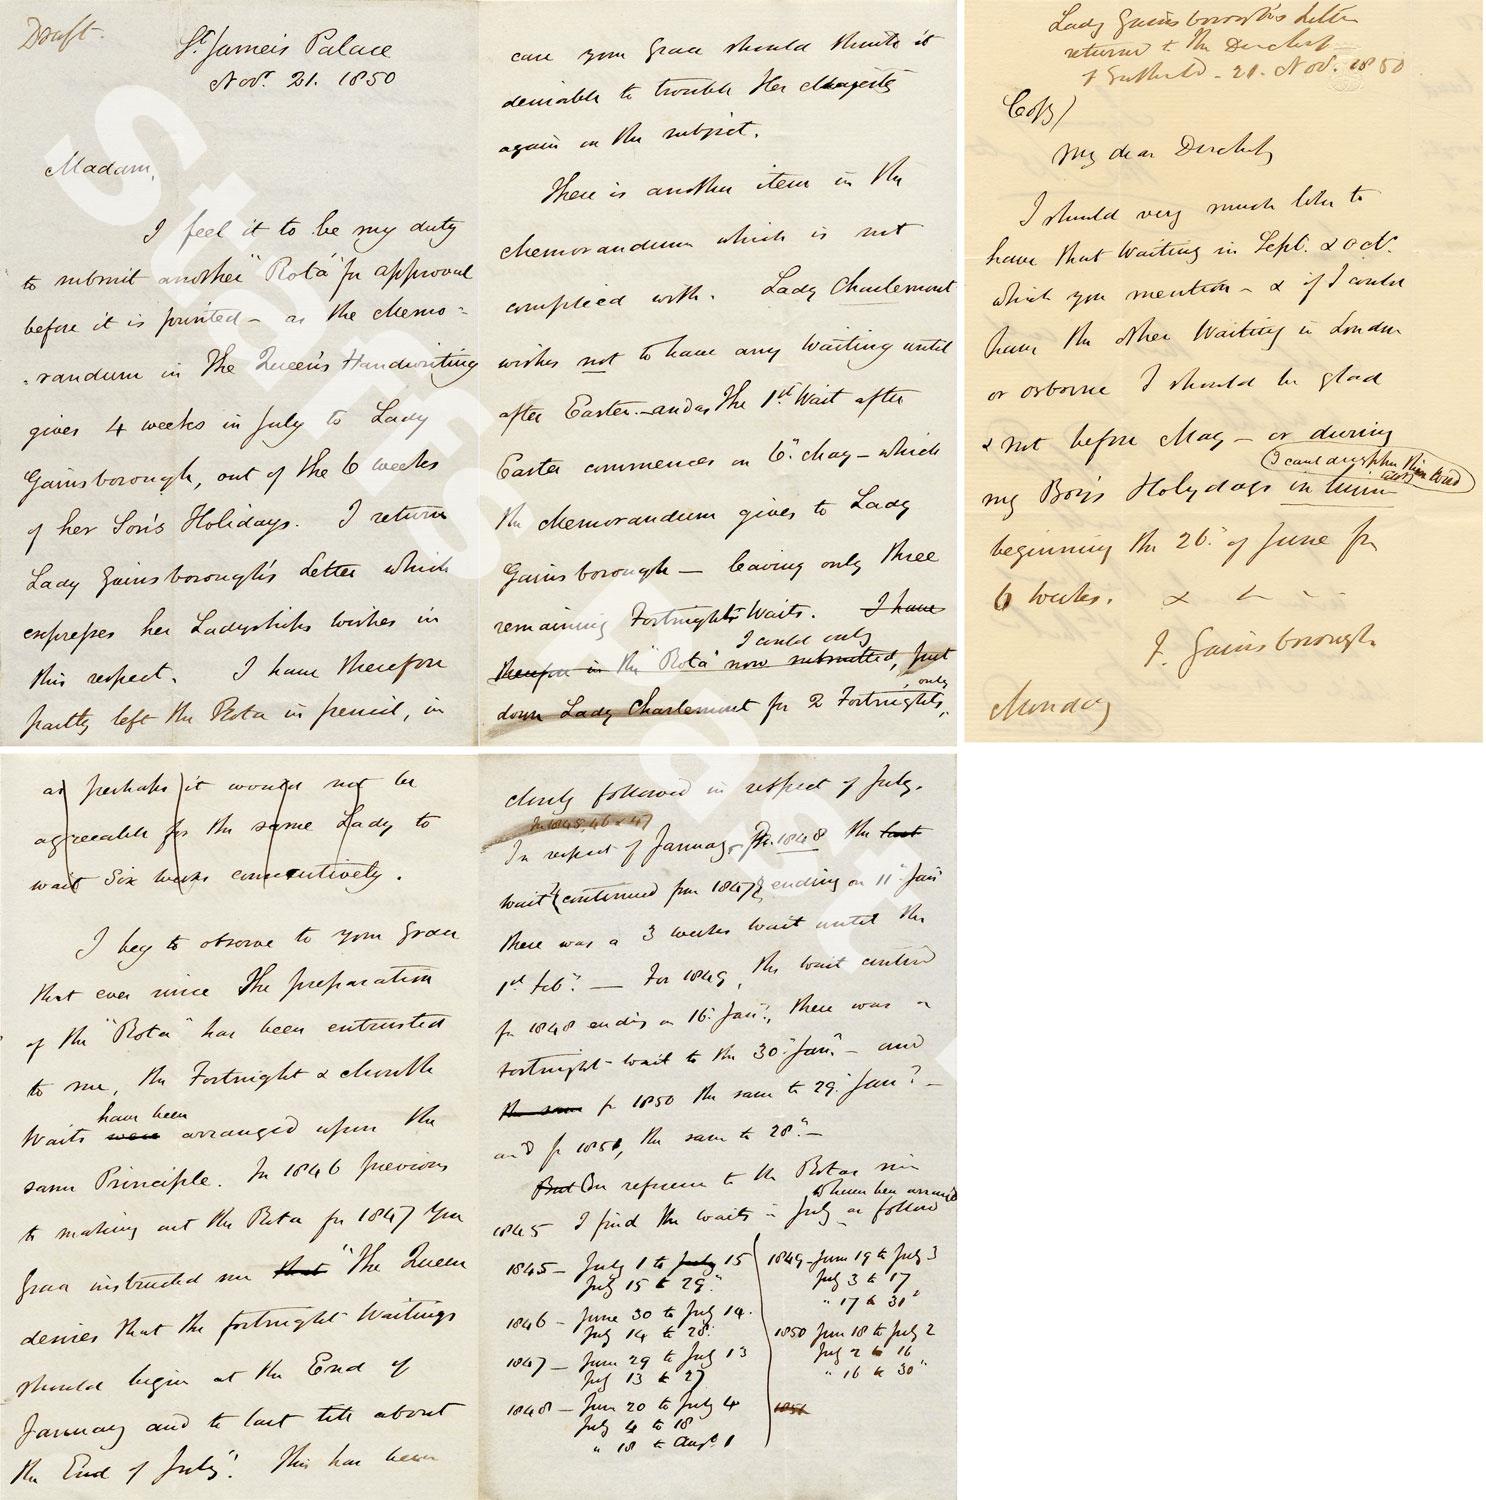 Draft.
St. James's Palace
Novr. 21. 1850
Madam,
I feel it to be my duty
to submit another "Rota" for approval
before it is printed - as the Memo=
=randum in The Queen's Handwriting
gives 4 weeks in July to Lady
Gainsborough, out of the 6 weeks
of her Son's Holidays. I return
Lady Gainsborough's Letter which
expresses her Ladyship's wishes in
this respect. I have therefore
partly left the Rota in pencil, in
case your Grace should think it
desirable to trouble Her Majesty
again on the subject.
There is another item in the
Memorandum which is not
complied with. Lady Charlemont
wishes not to have any Waiting until
after Easter - and as The 1st Wait after
Easter commences on 6th May - which
the Memorandum gives to Lady
Gainsborough - leaving only three
remaining Fortnight's Waits. I have
I could only
therefore in the "Rota" now submitted, put
only
down Lady Charlemont for 2 Fortnights,
as perhaps it would not be
agreeable for the same Lady to
wait Six weeks consecutively.
I beg to observe to your Grace
that ever since The preparation
of the "Rota" has been entrusted
to me, the Fortnight & Month
have been
Waits were arranged upon the
same Principle. In 1846 previous
to making out the Rota for 1847 Your
Grace instructed me that "The Queen
desires that the fortnight Waitings
should begin at the End of
January and to last till about
the End of July". This has been
closely followed in respect of July.
In 1845, 46 & 47
In respect of January, for 1848 the last
wait (continued from 1847) ending on 11th Jany
there was a 3 weeks wait until the
1st Feby. - For 1849, the wait
for 1848 ending on 16th Jany., there was a
fortnight wait to the 30th Jany. - and
the same for 1850 the same to 29th Jany. -
and for 1851, the same to 28th. -
But On reference to the Rotas since
have been arranged
1845 I find the waits in July as follow
1845 - July 1 to July 15
July 15 to 29th
1846 - June 30 to July 14.
July 14 to 28.
1847 - June 29 to July 13
July 13 to 27
1848 - June 20 to July 4
July 4 to 18
" 18 to Augt. 1
1849 - June 19 to July 3
July 3 to 17
" 17 to 31st
1850 June 18 to July 2
July 2 to 16
" 16 to 30th
1851
Lady Gainsborough's Letter
returned to the Duchess
of Sutherland - 21. Novr. 1850
Copy/
My dear Duchess
I should very much like to
have that Waiting in Sept. & Octr.
which you mention - & if I could
have the other Waiting in London
or Osborne I should be glad
& not before May - or during
my Boy's Holydays in
beginning the 26th of June for
6 weeks.
F. Gainsborough
Monday